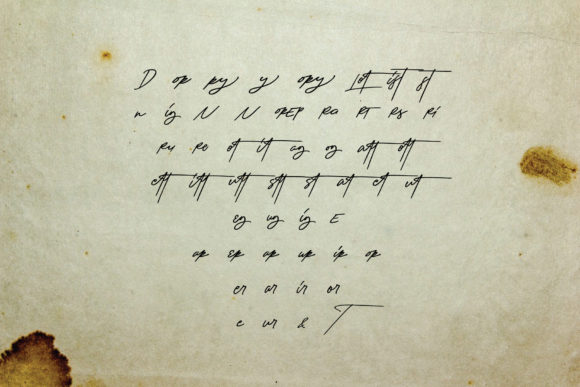 D op py y opy lot ift ft
n ig N N OPEP Ra RT Rs Ri
Ru Ro ot it ag og att ott
ett itt utt stt st at et ut
eg ug ig E
ap ep ap up ip op
er ar ir or
c ur & T